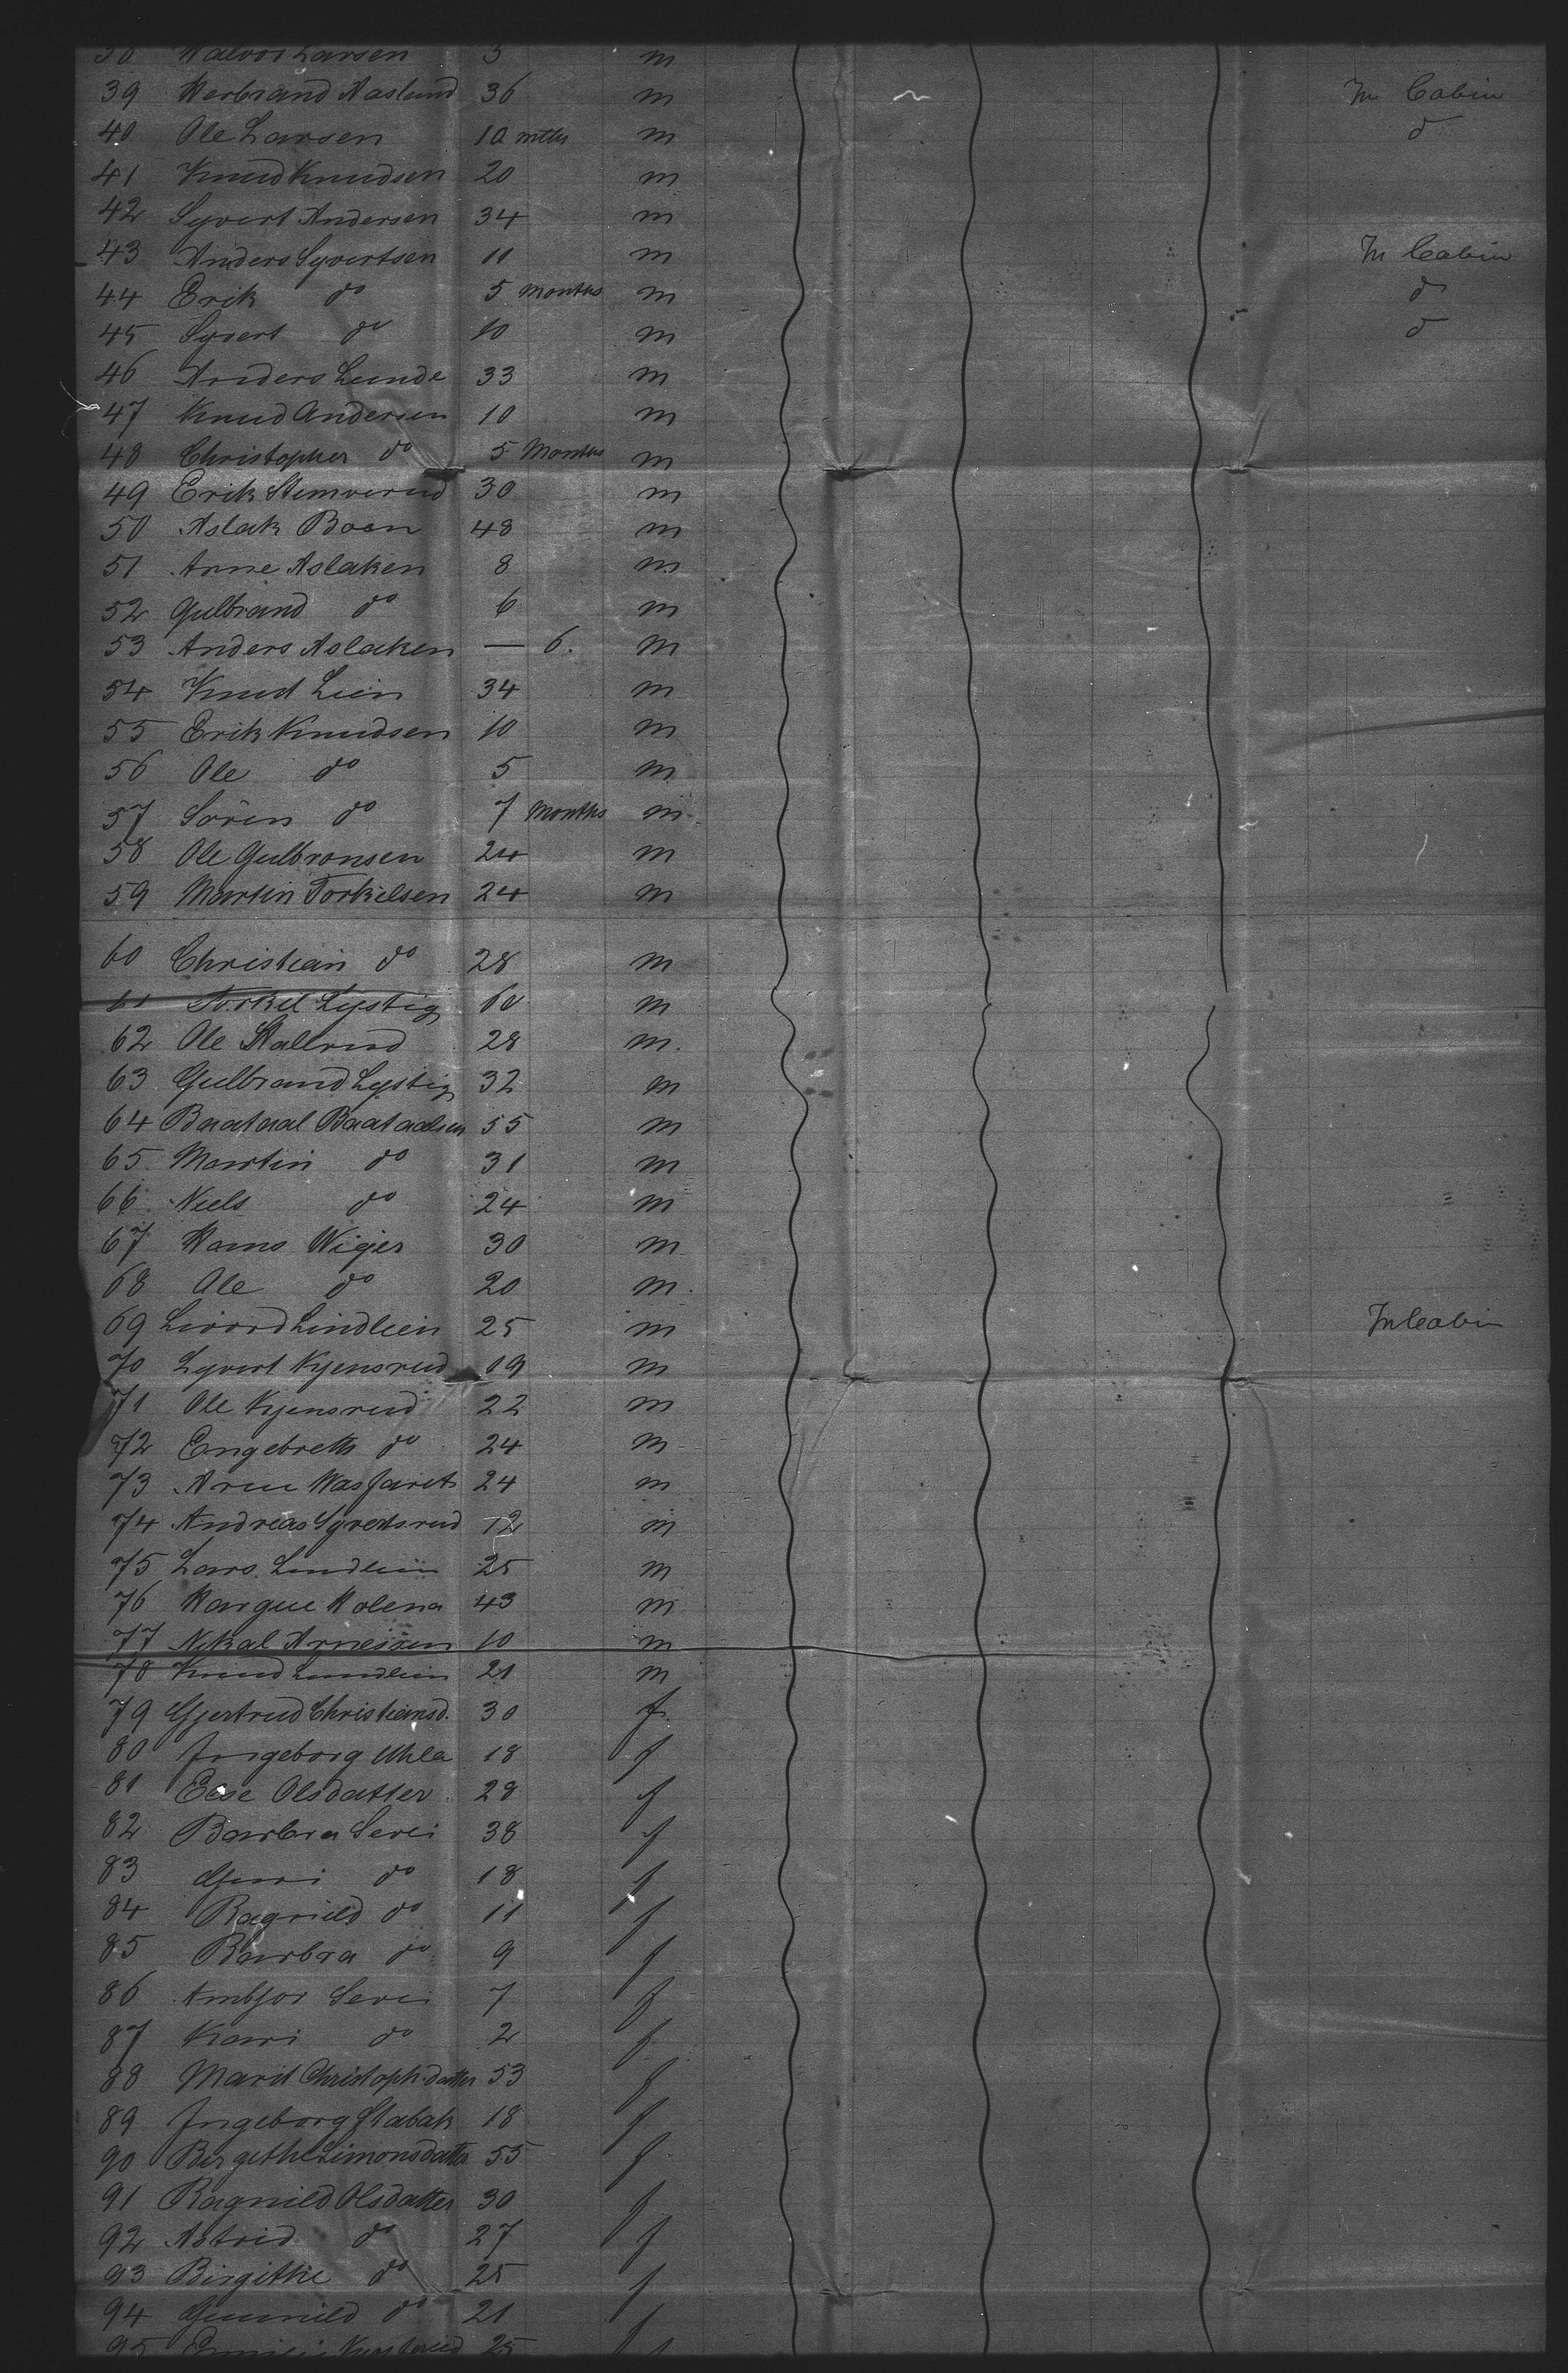 38 Halvor Larsen 3 m
39 Herbrand Haslund 36 m In Cabin
40 Ole Larsen 10 mths m d
41 Knud Knudsen 20 m
42 Syvert Andersen 34 m
43 Anders Syvertsen 11 m In Cabin
44 Erik do 5 Months m d
45 Syvert do 10 m d
46 Anders Lunde 33 m
47 Knud Andersen 10 m
48 Christopher do 5 Months m
49 Erik Stemverud 30 m
50 Aslak Boen 48 m
51 Arne Aslaken 8 m
52 Gulbrand do 6 m
53 Anders Aslaken — 6. m
54 Knud Lien 34 m
55 Erik Knudsen 10 m
56 Ole do 5 m
57 Sören do 7 Months m
58 Ole Gulbronsen 24 m
59 Martin Torkelsen 24 m
60 Christian do 28 m
61 Torkel Lystig 60 m
62 Ole Stallrud 28 m.
63 Gulbrand Lystig 32 m
64 Baataal Baataalsen 55 m
65 Martin do 31 m
66 Niels do 24 m
67 Hans Wiger 30 m
68 Ole do 20 m.
69 Lindlien 25 m In Cabin
70 Syvert Kjensrud 19 m
71 Ole Kjensrud 22 m
72 Engebreth do 24 m
73 Arne 24 m
74 Andreas Syvertsrud 12 m
75 Lars Lindlien 25 m
76 43 m
77 Arnesen 10 m
78 Knud Lundlien 21 m
79 Gjertrud Christiansd. 30 f.
80 Ingeborg Uhla 18 f
81 Olsdatter 28 f
82 Barbra Sevei 38 f
83 Guri do 18 f
84 Ragnild do 11 f
85 Barbra do 9 f
86 Ambjor Sevei 7 f
87 Kari do 2 f
88 Marit Christoph.datter 53 f
89 Ingeborg Stabak 18 f
90 Bergithe Simonsdatter 55 f
91 Ragnild Olsdatter 30 f
92 Astrid do 27 f
93 Birgithe do 25 f
94 Gunnild do 21 f
95 25 f